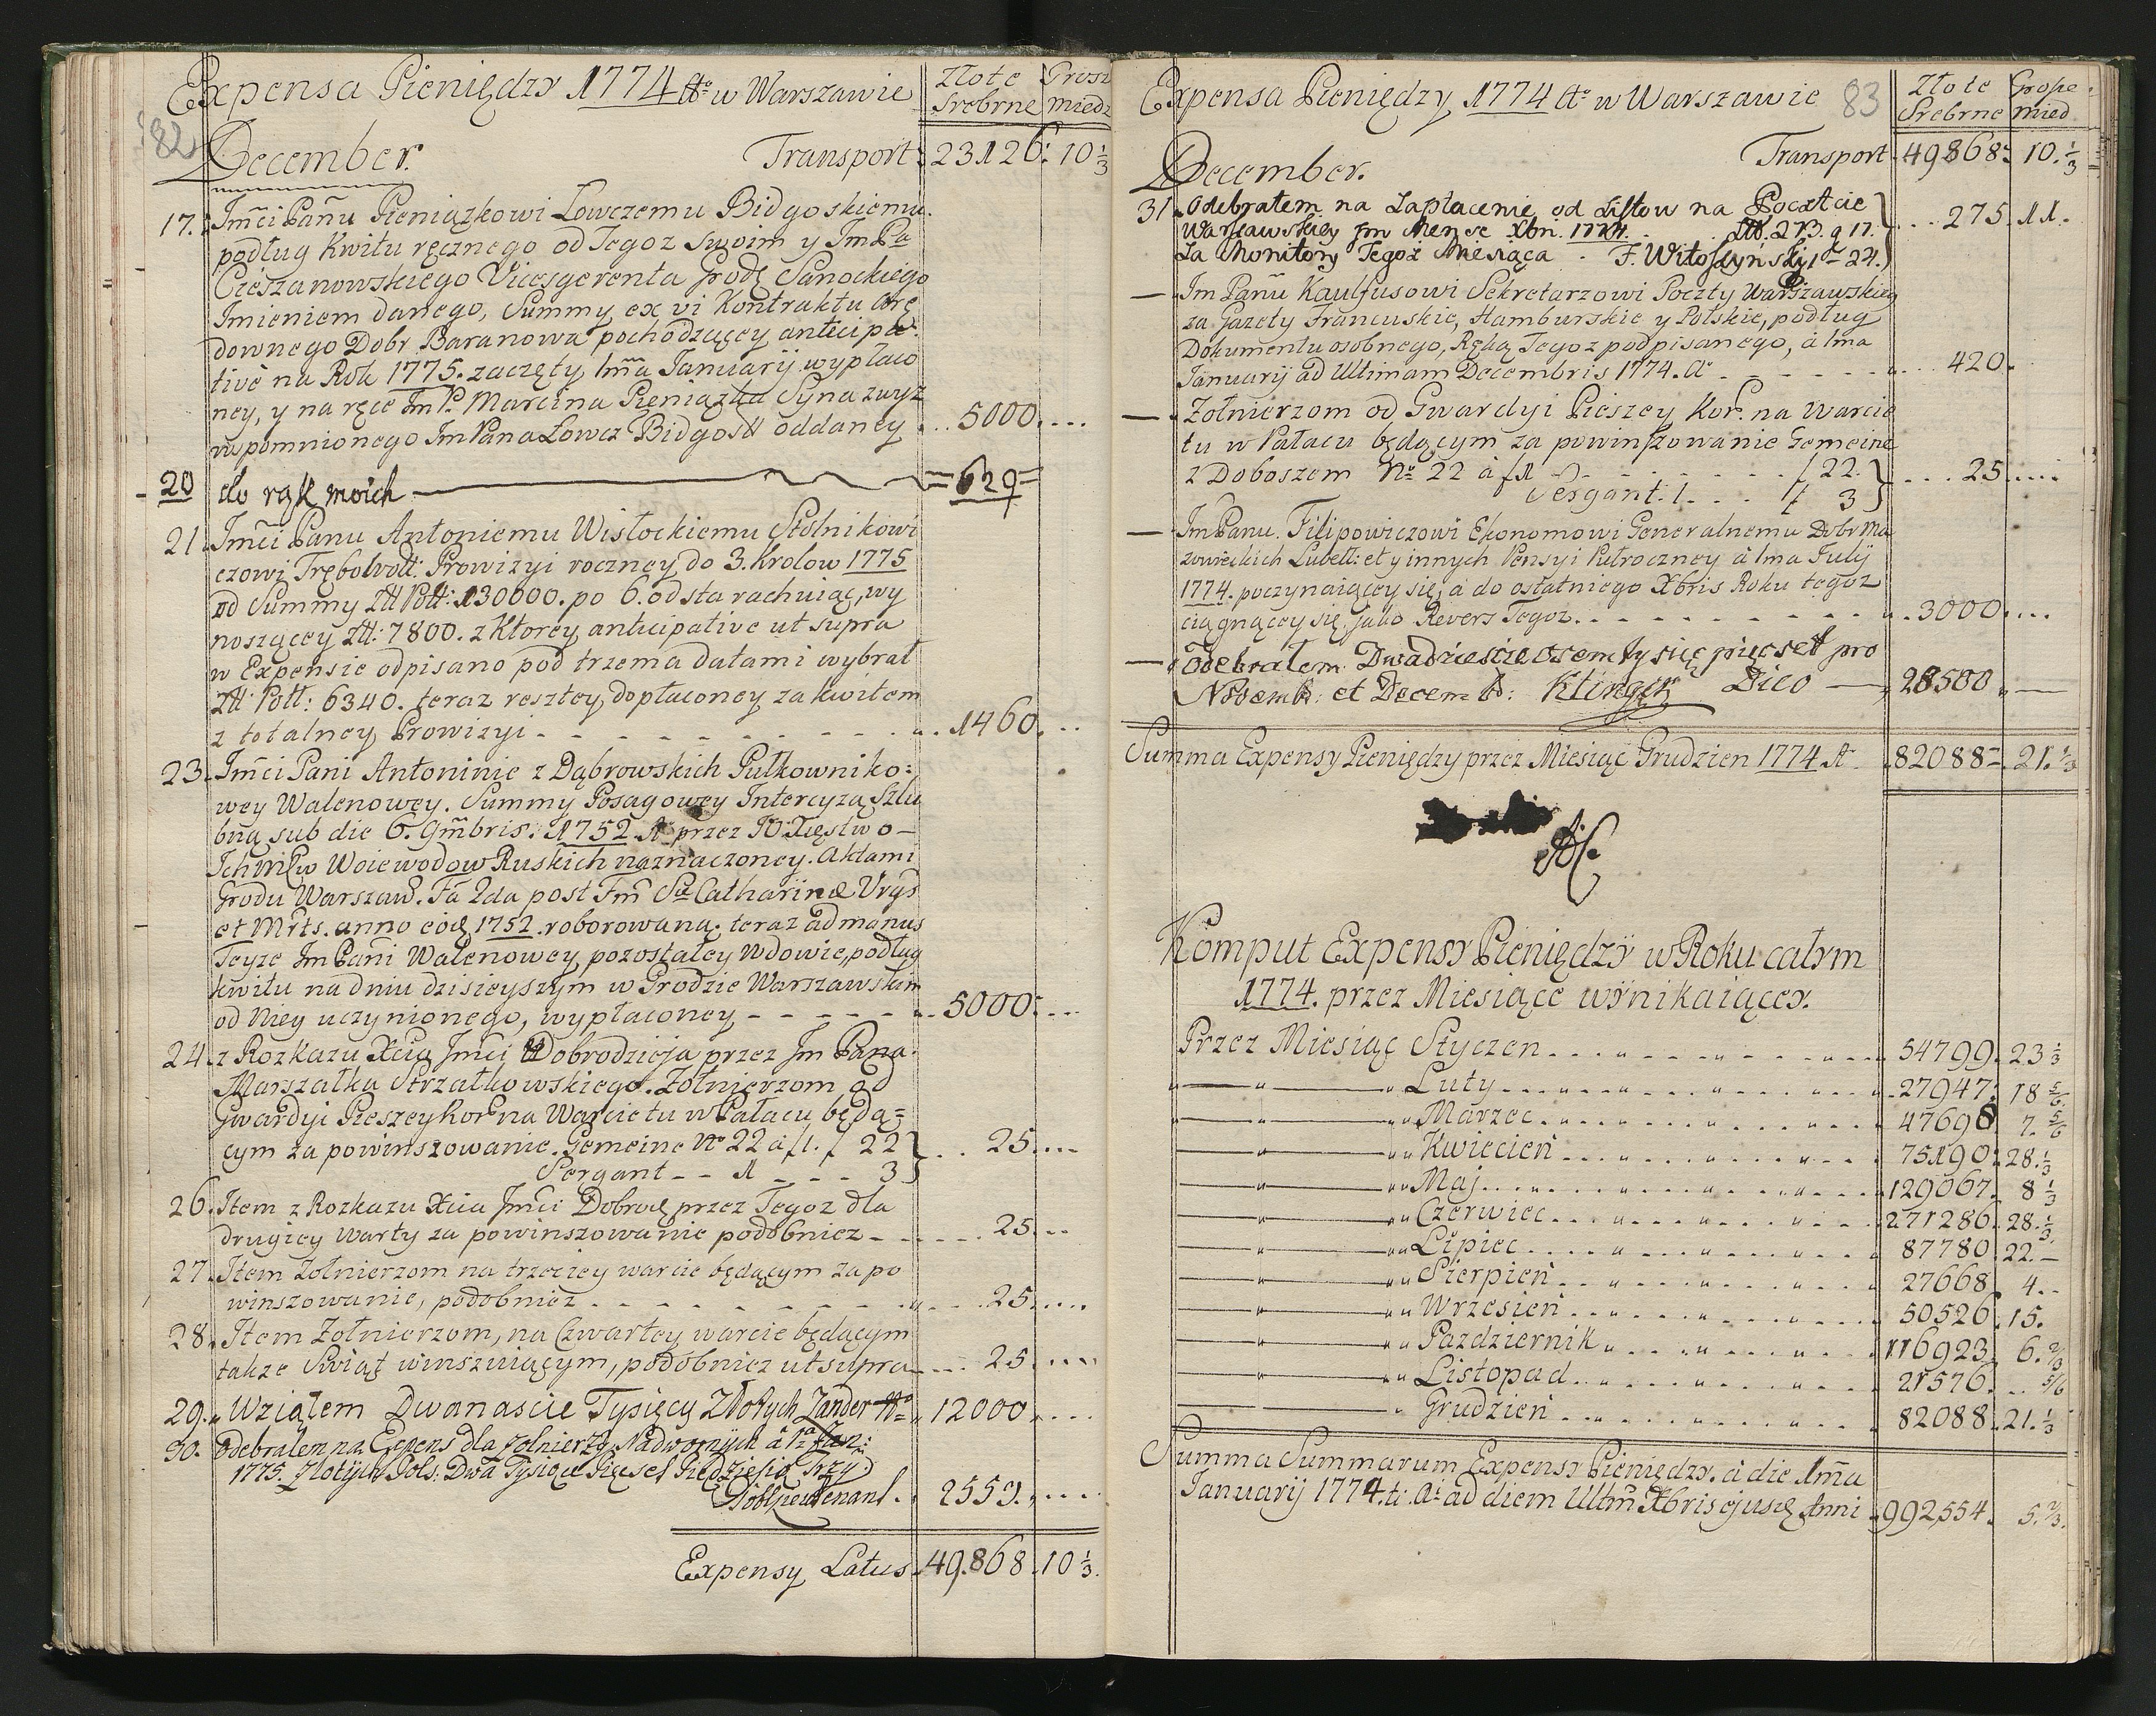 Expensa Pieniędzy 1774 Ao w Warszawie
Złote Srebrne
Grosz miedz
82
December.
Transport: 23126: 10 1/3
17. Imci Panu Pieniązkowi Łowczemu Bidgoskiemu
podług Kwitu ręcznego od Tegoz swoim y Im Pa
Cieszanowskiego Vicesgerenta Grodz Sanockiego
Imieniem danego, Summy ex vi Kontraktu Arę
downego Dobr Baranowa pochodzącey anticipa
tive na Rok 1775. zaczęty 1ma Januarij wypłaco
ney, y na ręce Im P. Marcina Pieniązka Syna zwyz
wspomnionego Im Pana Łowcz Bidgosk oddaney . . 5000. . . .
20 do rąk moich = 629 =
21. Imci Panu Antoniemu Wisłockiemu Stolnikowi
czowi Trębowolt: Prowizyi roczney do 3. Krolow 1775
od Summy ztt Pott: 130000. po 6. od sta rachuiąc, wy
noszącey Ztt: 7800. z Ktorey anticipative ut supra
w Expensie odpisano pod trzema datami wybrał
Ztt Pott: 6340. teraz resztey dopłaconey za kwitem
z totalney Prowizyi - - - - . . 1460. . .
23. Imci Pani Antoninie z Dąbrowskich Pułkowniko:
wey Walenowey. Summy Posagowey Intercyzą Szlu
bną sub die 6. 9mbris. 1752 Ao przez JO Xięstwo
Ichmciw Woiewodow Ruskich naznaczoney. Aktami
Grodu Warszaw. Fa 2da post Fm Sae Catharinæ Vrgs
et Mrts. anno eod 1752. roborowaną. teraz ad manus
Teyze Im Pani Walenowey pozostałey Wdowie, podług
kwitu na dniu dzisieyszym w Grodzie Warszawskim
od Niey uczynionego, wypłaconey - - - - - . . 5000: . . .
24. z Rozkazu Xcia Jmci Dobrodzieja przez Im Pana
Marszałka Strzałkowskiego. Zołnierzom od
Gwardyi Pieszey Kor: na Warcie tu w Pałacu będą=
cym za powinszowanie. Gemeine No 22 a f 1. f 22 } . . 25. . . .
Sergant - - 1 - - - 3
26. Item z Rozkazu Xcia Jmci Dobrod przez Tegoz dla
drugiey Warty za powinszowanie podobniez - . . . . 25. . .
27. Item Zołnierzom na trzeciey warcie będącym za po
winszowanie, podobniez - - - - - . . . 25. . . .
28. Item Zołnierzom, na Czwartey warcie będącym
takze Swiąt winszuiącym, podobniez ut supra . . . 25 . . . .
29. Wziąłem Dwanascie Tysięcy Złotych Zander 12000 . . . .
30. Odebrałem na Expens dla zolnierzy Nadwornych a 1a Jan:
1775. Złotych Pols: Dwa Tysiące Pięcset Piędziesią Trzy
2553. . . . .
Expensy Latus. 49.868. 10 1/3.
Expensa Pieniędzy 1774 Ao w Warszawie
83
Złote Srebrne
Grosze mied
December.
Transport 49868: 10. 1/3
31. Odebrałem na Zapłacenie od Listow na Poczcie
Warszawskiey pro Mense Xbri. 1774. . . . Ztt. 273. g 17. } . . . 275. 11.
Za Monitory Tegoż Miesiąca . F. Witoszyński 1 - 24.
— Im Panu Kaulfusowi Sekretarzowi Poczty Warszawskiey
za Gazety Francuskie, Hamburskie y Polskie, podług
Dokumentu osobnego, Ręką Tegoz podpisanego, a 1ma
Januarij ad Ultimam Decembris 1774. Ao - - - - - . . . 420.
— Zołnierzom od Gwardyi Pieszey Kor. na Warcie
tu w Pałacu będącym za powinszowanie Gemeine
z Doboszem No 22 a f 1 - - - - - - f 22. } . . . 25. . . .
Sergant: 1. . . f 3
— Im Panu. Filipowiczowi Ekonomowi Generalnemu Dobr Ma
zowieckich Lubell: et y innych Pensyi Pułroczney a 1ma Julij
1774. poczynaiącey się, a do ostatniego Xbris Roku tegoz
ciągnącey się, jako Revers Tegoz. - - - - - . . 3000. . . .
— Odebrałem Dwadziescie osem tysięc pięcset pro
Novemb: et Decemb: Klinger Dico — 28500 . —
Summa Expensy Pieniędzy przez Miesiąc Grudzien 1774 Ao. 82088 - 21. 1/3
Komput Expensy Pieniędzy w Roku całym
1774. przez Miesiące wynikaiącey.
Przez Miesiąc Styczen . . . 54799. 23 1/3
— " — " Luty . . . 27947: 18 5/6
— " — " Marzec . . . 47698 7. 5/6
— " — " Kwiecień . . . 75190: 28. 1/3
— " — " Maj . . . 129067. 8 1/3
— " — " Czerwiec . . . 271286. 28. 1/3
— " — " Lipiec . . . 87780. 22. —
— " — " Sierpień . . . 27668. 4. .
— " — " Wrzesień . . . 50526. 15.
— " — " Pazdziernik . . . 116923. 6. 2/3
— " — " Listopad . . . 21576. . . 5/6
— " — " Grudzień . . . 82088. 21. 1/3
Summa Summarum Expensy Pieniędzy. a die 1ma
Januarij 1774. ti Ai ad diem Ultm Xbris ejusd Anni 992,554. 5. 2/3.